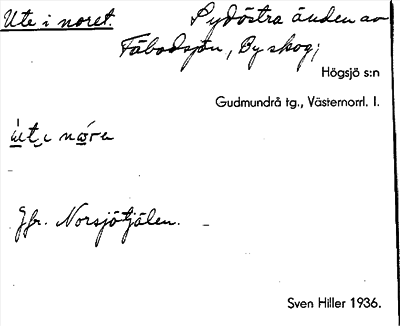 Ute i noret. Sydöstra änden av
Fäbodsjön, By skog;
Högsjö s:n
Gudmundrå tg., Västernorrl. l.
ùt i nǫ́re
Jfr. Norsjötjälen.
Sven Hiller 1936.